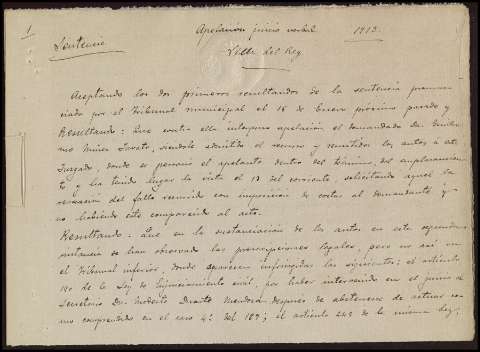 1
Apelacion juicio verbal 1913.
Sentencia
Villar del Rey
Aceptando los dos primeros resultandos de la sentencia pronun
ciada por el Tribunal municipal el 18 de Enero próximo pasado y
Resultando: Que contra ella interpuso apelación el demandado Dn.
siendole admitido el recurso y remitidos los autos a este
Juzgado, donde se personó el apelante dentro del término del emplazamien
to y ha tenido lugar la vista el 17 del corriente, solicitando aquel la
revocacion del fallo recurrido con imposición de costas al demandante y
no habiendo este comparecido al acto.
Resultando: Que en la sustanciación de los autos en esta segunda
instancia se han observado las prescripciones legales, pero no así en
el Tribunal inferior, donde aparecen infringidas las siguientes: el artículo
de la Ley de Enjuiciamiento civil, por haber intervenido en el juicio el
Secretario Dn. Modesto Mendoza despues de abstenerse de actuar co
mo comprendido en el caso 4º del 189; el artículo 249 de la misma ley,